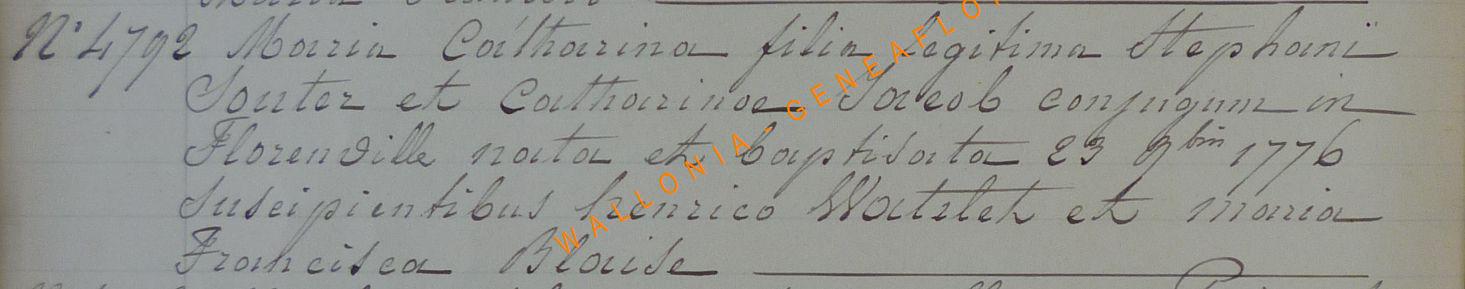 N° 4792 Maria Catharina filia legitima Stephani
Souter et Catharinae Jacob conjugum in
Florenville nata et baptisata 23 9bris 1776
suscipientibus henrico Watelet et maria
Francisca Blaise
WALLONIA-GENEAFLO